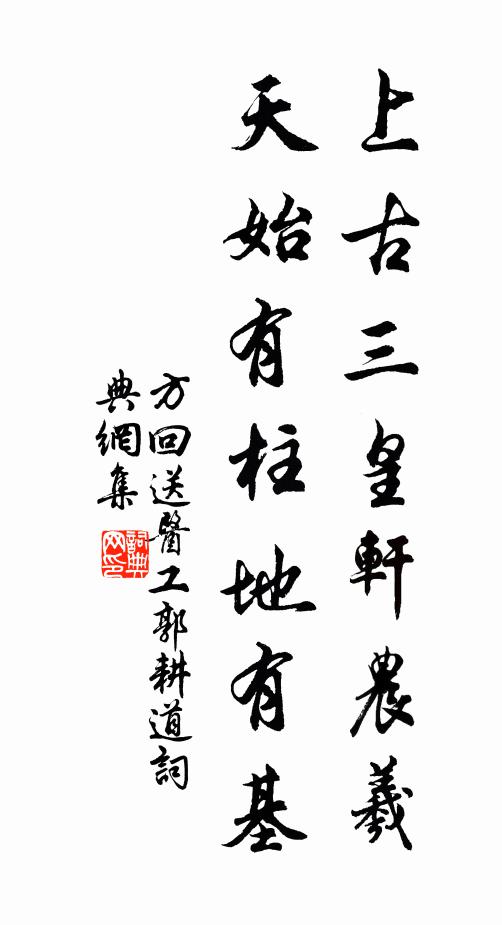 上古三皇軒農羲
天始有柱地有基
方回送醫工郭耕道詞
典網集
詞典
网印